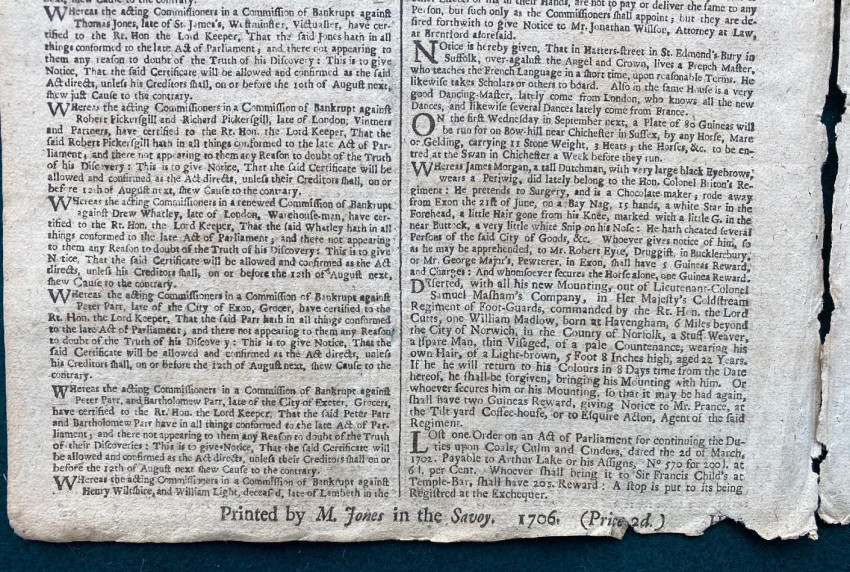 next, shew Cause to the contrary.
Whereas the acting Commissioners in a Commission of Bankrupt against
Thomas Jones, late of St. James's, Westminster, Victualler, have cer-
tified to the Rt. Hon the Lord Keeper, That the said Jones hath in all
things conformed to the late Act of Parliament; and there not appearing to
them any reason to doubt of the Truth of his Discovery: This is to give
Notice, That the said Certificate will be allowed and confirmed as the said
Act directs, unless his Creditors shall, on or before the 10th of August next,
shew just Cause to the contrary.
Whereas the acting Commissioners in a Commission of Bankrupt against
Robert Pickersgill and Richard Pickersgill, late of London, Vintners
and Partners, have certified to the Rt. Hon. the Lord Keeper, That the
said Robert Pickersgill hath in all things conformed to the late Act of Par-
liament; and there not appearing to them any Reason to doubt of the Truth
of his Discovery: This is to give Notice, That the said Certificate will be
allowed and confirmed as the Act directs, unless their Creditors shall, on or
before 12th of August next, shew Cause to the contrary.
Whereas the acting Commissioners in a renewed Commission of Bankrupt
against Drew Whatley, late of London, Warehouse-man, have cer-
tified to the Rt. Hon. the Lord Keeper, That the said Whatley hath in all
things conformed to the late Act of Parliament; and there not appearing
to them any Reason to doubt of the Truth of his Discovery: This is to give
Notice, That the said Certificate will be allowed and confirmed as the Act
directs, unless his Creditors shall, on or before the 12th of August next,
shew Cause to the contrary.
Whereas the acting Commissioners in a Commission of Bankrupt against
Peter Parr, late of the City of Exon, Grocer, have certified to the
Rt. Hon. the Lord Keeper, That the said Parr hath in all things conformed
to the late Act of Parliament; and there not appearing to them any Reason
to doubt of the Truth of his Discovery: This is to give Notice, That the
said Certificate will be allowed and confirmed as the Act directs, unless
his Creditors shall, on or before the 12th of August next, shew Cause to the
contrary.
Whereas the acting Commissioners in a Commission of Bankrupt against
Peter Parr, and Bartholomew Parr, late of the City of Exeter, Grocers,
have certified to the Rt. Hon. the Lord Keeper, That the said Peter Parr
and Bartholomew Parr have in all things conformed to the late Act of Par-
liament; and there not appearing to them any Reason to doubt of the Truth
of their Discoveries: This is to give Notice, That the said Certificate will
be allowed and confirmed as the Act directs, unless their Creditors shall on or
before the 12th of August next shew Cause to the contrary.
Whereas the acting Commissioners in a Commission of Bankrupt against
Henry Wiltshire, and William Light, deceas'd, late of Lambeth in the
of his in their Hands, are not to pay or deliver the same to any
Person, but such only as the Commissioners shall appoint; but they are de-
sired forthwith to give Notice to Mr. Jonathan Willson, Attorney at Law,
at Brentford aforesaid.
Notice is hereby given, That in Hatters-street in St. Edmond's Bury in
Suffolk, over-against the Angel and Crown, lives a French Master,
who teaches the French Language in a short time, upon reasonable Terms. He
likewise takes Scholars or others to board. Also in the same House is a very
good Dancing-Master, lately come from London, who knows all the new
Dances, and likewise several Dances lately come from France.
On the first Wednesday in September next, a Plate of 80 Guineas will
be run for on Bow-hill near Chichester in Sussex, by any Horse, Mare
or Gelding, carrying 11 Stone Weight, 3 Heats; the Horses, &c. to be en-
tred at the Swan in Chichester a Week before they run.
Whereas James Morgan, a tall Dutchman, with very large black Eyebrows,
wears a Periwig, did lately belong to the Hon. Colonel Briton's Re-
giment: He pretends to Surgery, and is a Chocolate-maker; rode away
from Exon the 21st of June, on a Bay Nag, 15 hands, a white Star in the
Forehead, a little Hair gone from his Knee, marked with a little G. in the
near Buttock, a very little white Snip on his Nose: He hath cheated several
Persons of the said City of Goods, &c. Whoever gives notice of him, so
as he may be apprehended, to Mr. Robert Eyre, Druggist, in Bucklersbury,
or Mr. George Major's, Pewterer, in Exon, shall have 5 Guineas Reward,
and Charges: And whomsoever secures the Horse alone, one Guinea Reward.
Deserted, with all his new Mounting, out of Lieutenant-Colonel
Samuel Masham's Company, in Her Majesty's Coldstream
Regiment of Foot-Guards, commanded by the Rt. Hon. the Lord
Cutts, one William Madlow, born at Havengham, 6 Miles beyond
the City of Norwich, in the County of Norfolk, a Stuff Weaver,
a spare Man, thin Visaged, of a pale Countenance, wearing his
own Hair, of a Light-brown, 5 Foot 8 Inches high, aged 22 Years.
If he will return to his Colours in 8 Days time from the Date
hereof, he shall be forgiven, bringing his Mounting with him. Or
whoever secures him or his Mounting, so that it may be had again,
shall have two Guineas Reward, giving Notice to Mr. Prance, at
the Tilt yard Coffee-house, or to Esquire Acton, Agent of the said
Regiment.
Lost one Order on an Act of Parliament for continuing the Du-
ties upon Coals, Culm and Cinders, dated the 2d of March,
1702. Payable to Arthur Lake or his Assigns, No 570 for 200 l. at
6 l. per Cent. Whoever shall bring it to Sir Francis Child's at
Temple-Bar, shall have 20s. Reward: A stop is put to its being
Registred at the Exchequer.
Printed by M. Jones in the Savoy. 1706. (Price 2d.)